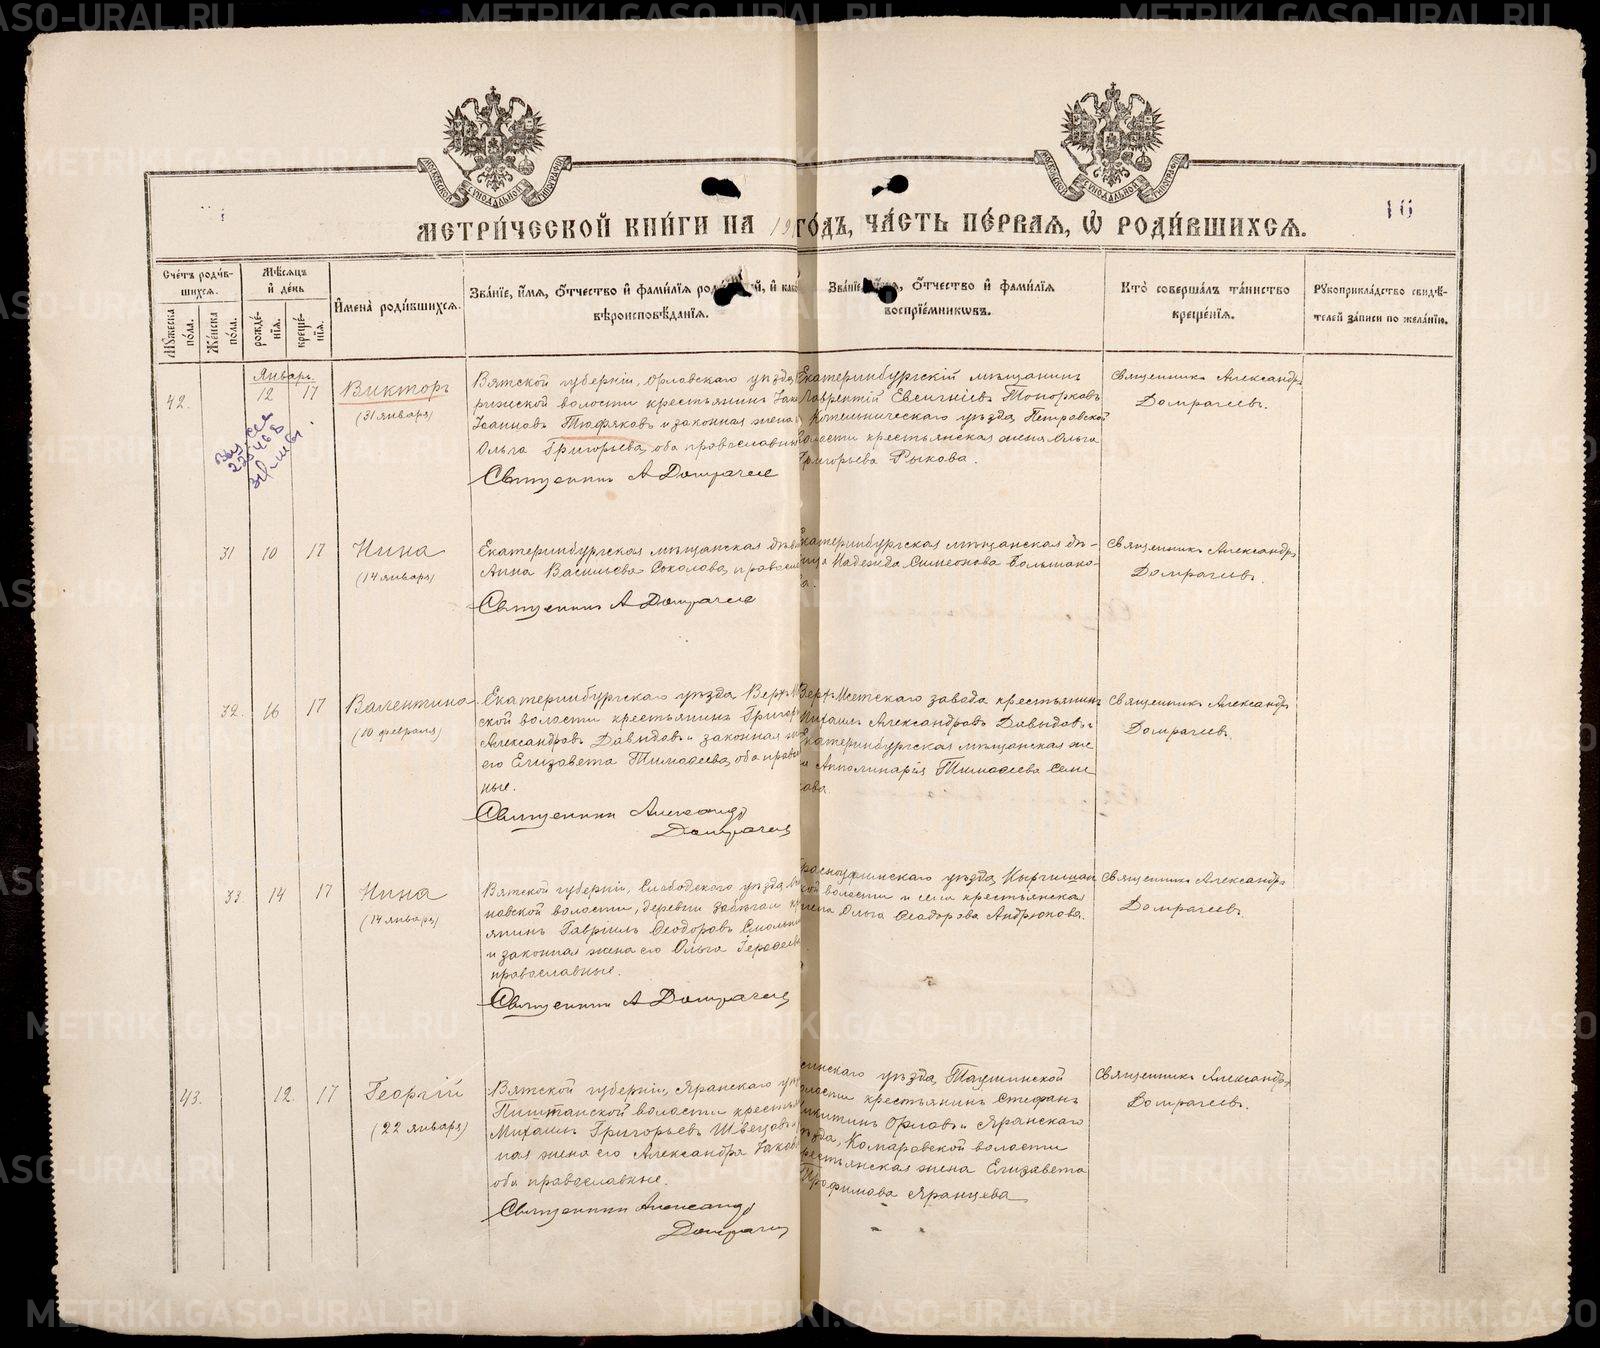 МЕТРИ́ЧЕСКОЙ КНИ́ГИ НА 19 ГО́ДЪ, ЧА́СТЬ ПЕ́РВАЯ, Ѡ РОДИ́ВШИХСЯ.
16
Сче́тъ роди́в-
шихся.
Мꙋ́жеска по́ла.
Же́нска по́ла.
Мѣ́сяцъ
и҆ де́нь
рожде́-
нія.
креще́-
нія.
И҆мена̀ роди́вшихся.
Зва́ніе, и҆́мя, ѻ҆́тчество и҆ фами́лія
вѣроисповѣ́данія.
ѻ҆́тчество и҆ фами́лія
воспріе́мникѡвъ.
Кто̀ соверша́лъ та́инство
креще́нія.
Рꙋкоприкла́дство свидѣ́-
телей за́писи по жела́нію.
42.
Январь.
12 17
Викторъ
(31 января)
Вятской губерніи, Орловскаго уѣзда
волости крестьянинъ
Іоанновъ Тюфяковъ и законная жена
Ольга Григорьева, оба православны
Священникъ А Домрачевъ
Екатеринбургскій мѣщанинъ
Лаврентій Евсигніевъ Топорковъ
Котельническаго уѣзда, Петровской
волости крестьянская жена Ольга
Григорьева Рыкова.
Священникъ Александръ
Домрачевъ.
31 10 17
Нина
(14 января)
Екатеринбургская мѣщанская дѣв
Анна Васильева Соколова, правосл
Священникъ А Домрачевъ
Екатеринбургская мѣщанская дѣ-
вица Надежда Симеонова Большако-
ва.
Священникъ Александръ
Домрачевъ.
32. 16 17
Валентина
(10 февраля)
Екатеринбургскаго уѣзда Верхъ
ской волости крестьянинъ Григор
Александровъ Давыдовъ и законная
его Елизавета Тимофеева, оба право
ные.
Священникъ Александръ
Домрачевъ
Верхъ Исетскаго завода крестьянинъ
Михаилъ Александровъ Давыдовъ и
Екатеринбургская мѣщанская же
на Апполинарія Тимофеева Семе
кова.
Священникъ Александръ
Домрачевъ.
33. 14 17
Нина
(14 января)
Вятской губерніи, Слободского уѣзда,
новской волости, деревни
янинъ Гавріилъ Феодоровъ
и законная жена его Ольга
православные.
Священникъ А Домрачевъ
Красноуфимскаго уѣзда, Кыргишан
ской волости и села крестьянская
жена Ольга Феодорова Андрюкова.
Священникъ Александръ
Домрачевъ.
43. 12. 17
Георгій
(22 января)
Вятской губерніи, Яранскаго уѣз
Пиштанской волости кресть
Михаилъ Григорьевъ Швецовъ
ная жена его Александра Іаков
оба православные.
Священникъ Александръ
Домрачевъ
уѣзда, Ташинской
волости крестьянинъ Стефанъ
Никитинъ Орловъ и Яранскаго
уѣзда, Комаровской волости
крестьянская жена Елизавета
Трофимова Яранцева
Священникъ Александръ
Домрачевъ.
METRIKI.GASO-URAL.RU